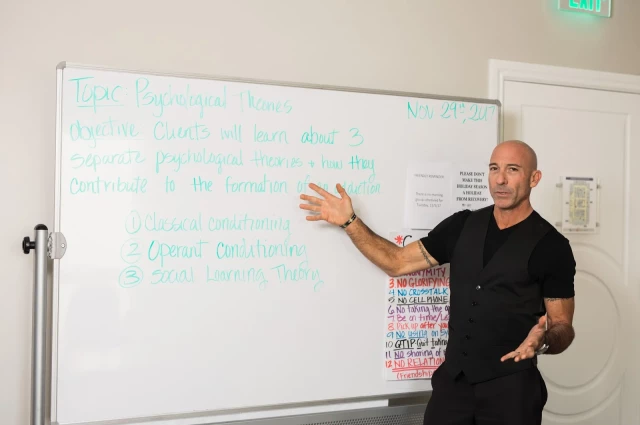 EXIT
Topic: Psychological Theories
Nov 29th, 2017
Objective: Clients will learn about 3
separate psychological theories + how they
contribute to the formation of an addiction
① Classical conditioning
② Operant conditioning
③ Social Learning Theory
PLEASE DON'T
MAKE THIS
HOLIDAY SEASON
A HOLIDAY
FROM RECOVERY!
3 NO GLORIFYING
4 NO CROSSTALK
5 NO CELL PHONE
6 No taking the
7 Be on time/
8 Pick up after you
9 No using on
10 QTIP (quit taking
11 No sharing of
12 NO RELATION
(Friendship